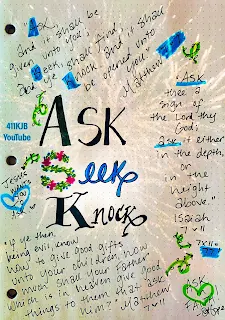 "Ask
and it shall be
given unto you;
Seek
and ye shall find;
Knock and it shall
be opened unto
you." Matthew
411KJB
YouTube
ASK
Seek
Knock
"Ask
thee a
sign of
the Lord thy
God;
ask it either
in the depth,
or
in the
height
above."
Isaiah
7 v 11
Jesus
Ask
"If ye then
being evil know
how to give good gifts
unto your children, how
much shall your Father
which is in heaven give good
things to them that ask
him?" Matthew
7 v 11
7 v 11
Ask